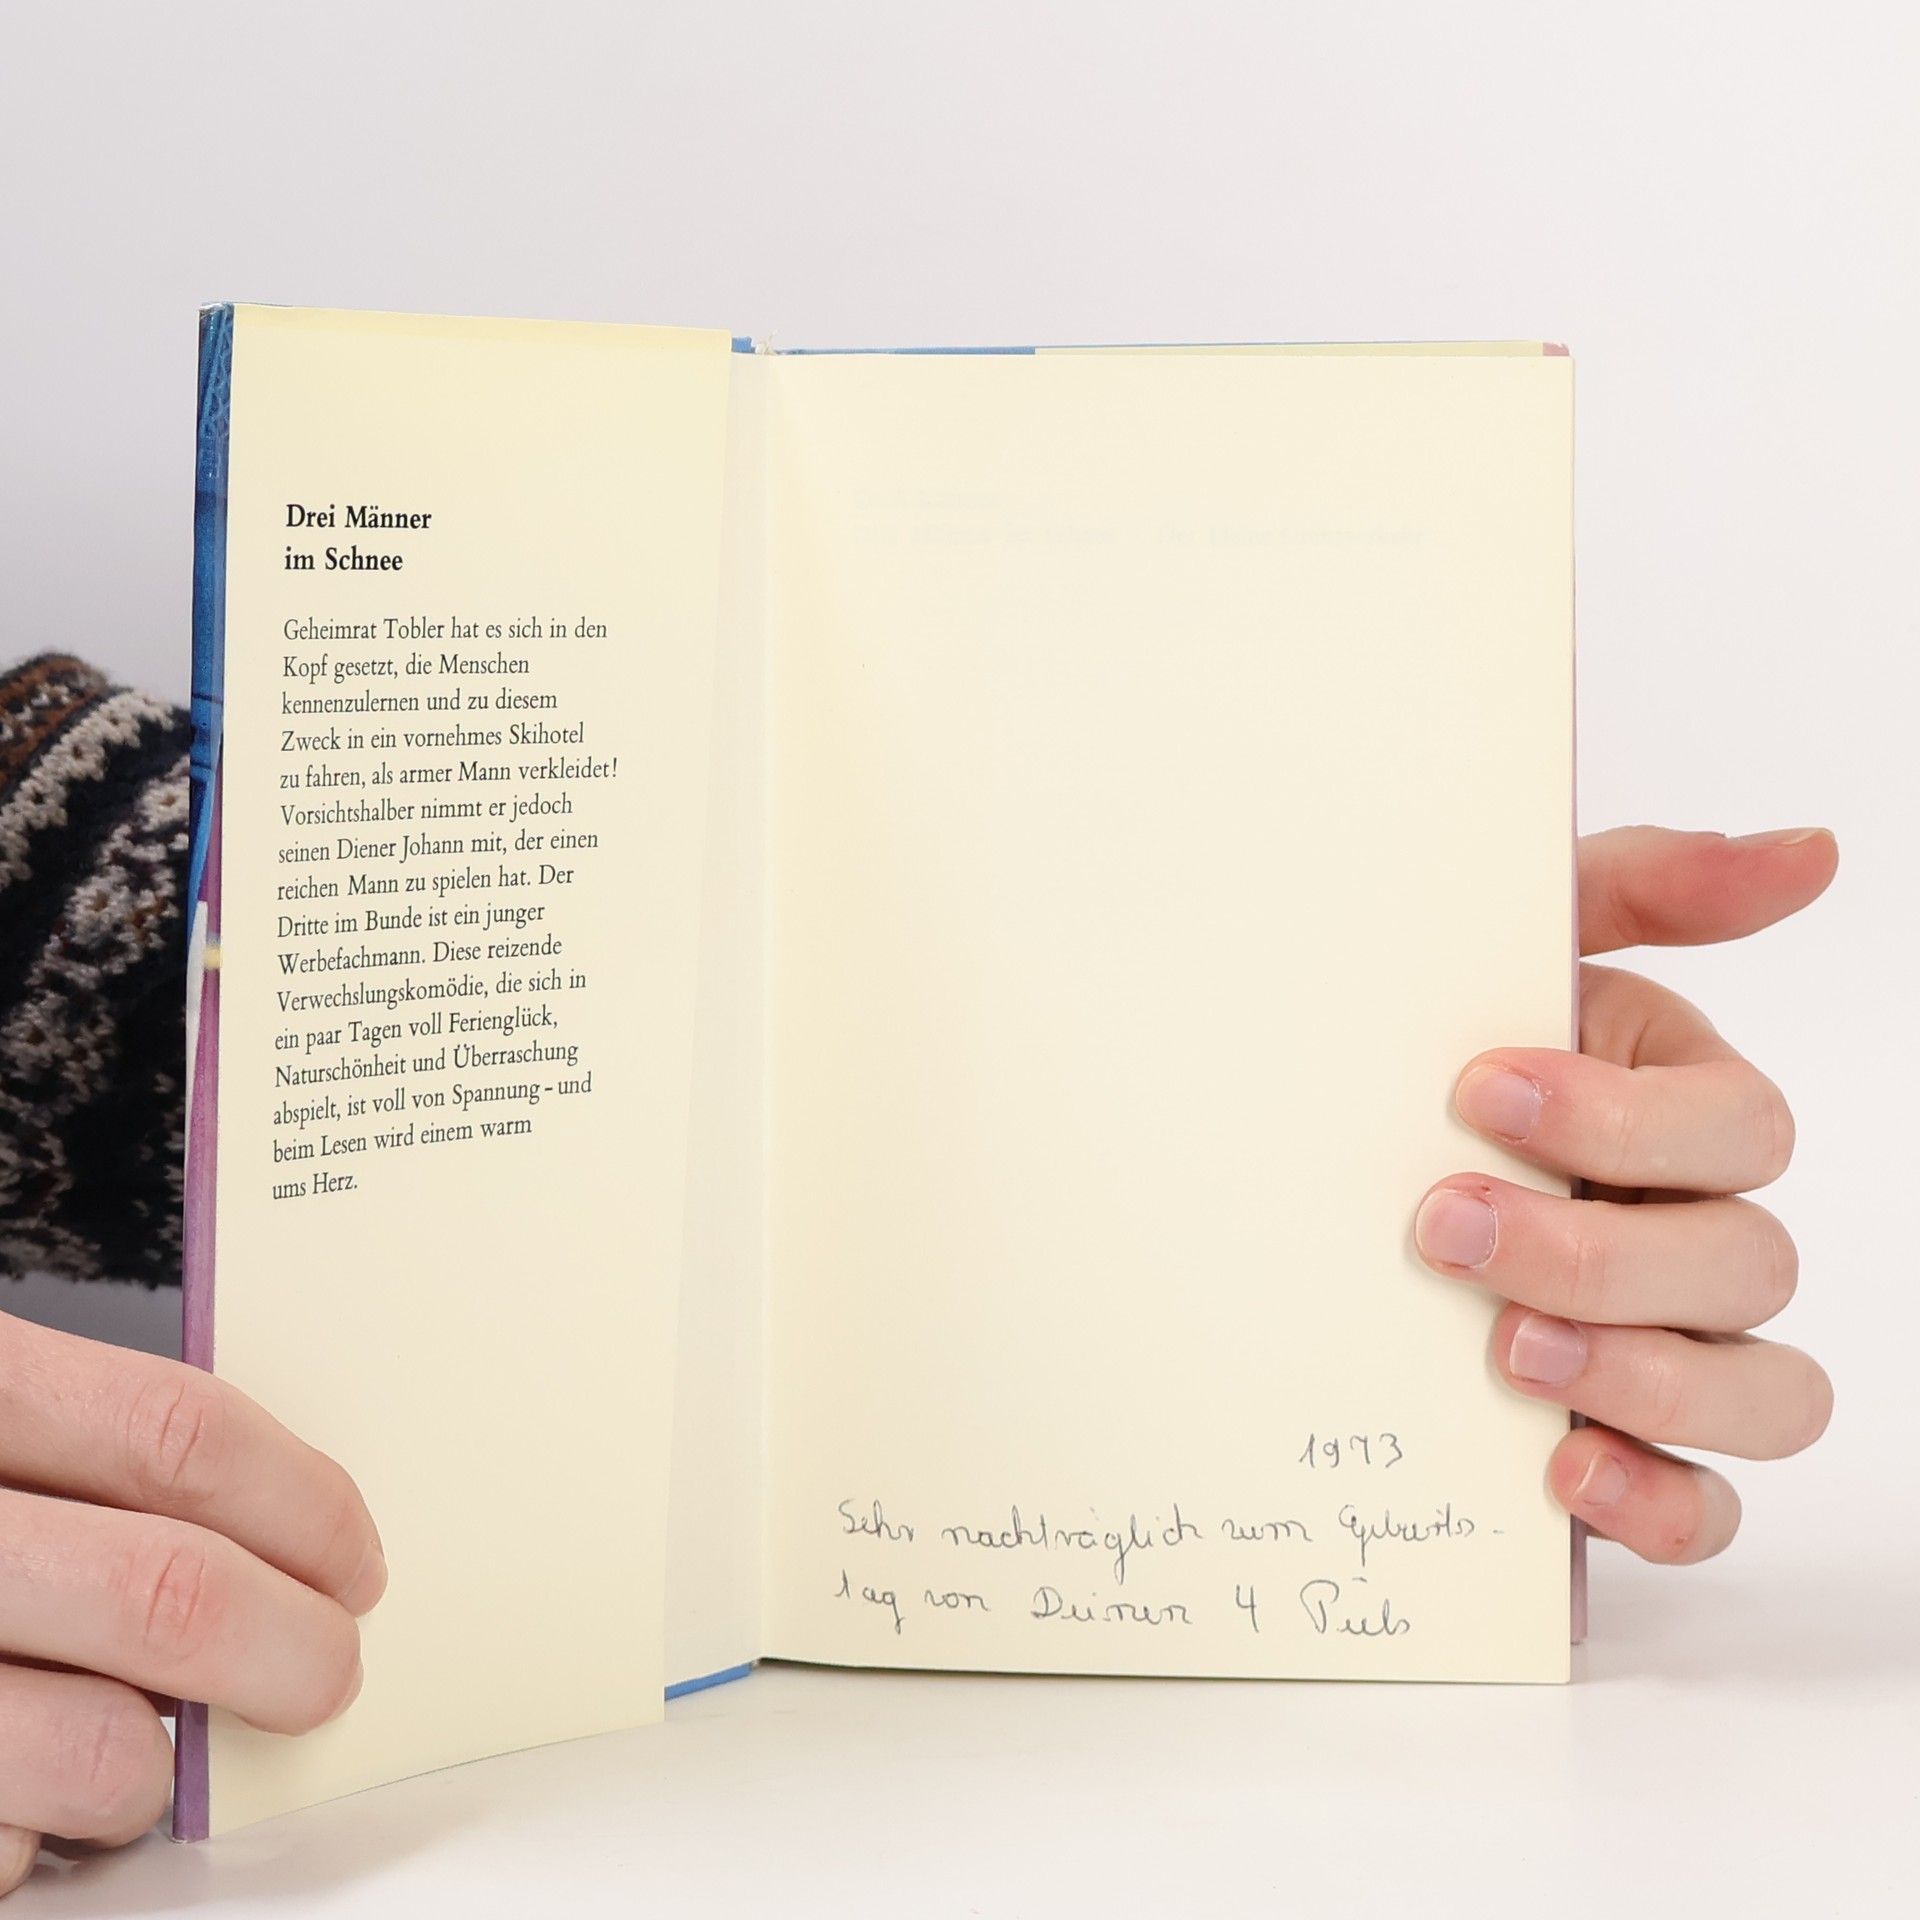 Drei Männer
im Schnee
Geheimrat Tobler hat es sich in den
Kopf gesetzt, die Menschen
kennenzulernen und zu diesem
Zweck in ein vornehmes Skihotel
zu fahren, als armer Mann verkleidet!
Vorsichtshalber nimmt er jedoch
seinen Diener Johann mit, der einen
reichen Mann zu spielen hat. Der
Dritte im Bunde ist ein junger
Werbefachmann. Diese reizende
Verwechslungskomödie, die sich in
ein paar Tagen voll Ferienglück,
Naturschönheit und Überraschung
abspielt, ist voll von Spannung – und
beim Lesen wird einem warm
ums Herz.
1973
Sehr nachträglich zum Geburts-
tag von Deinen 4